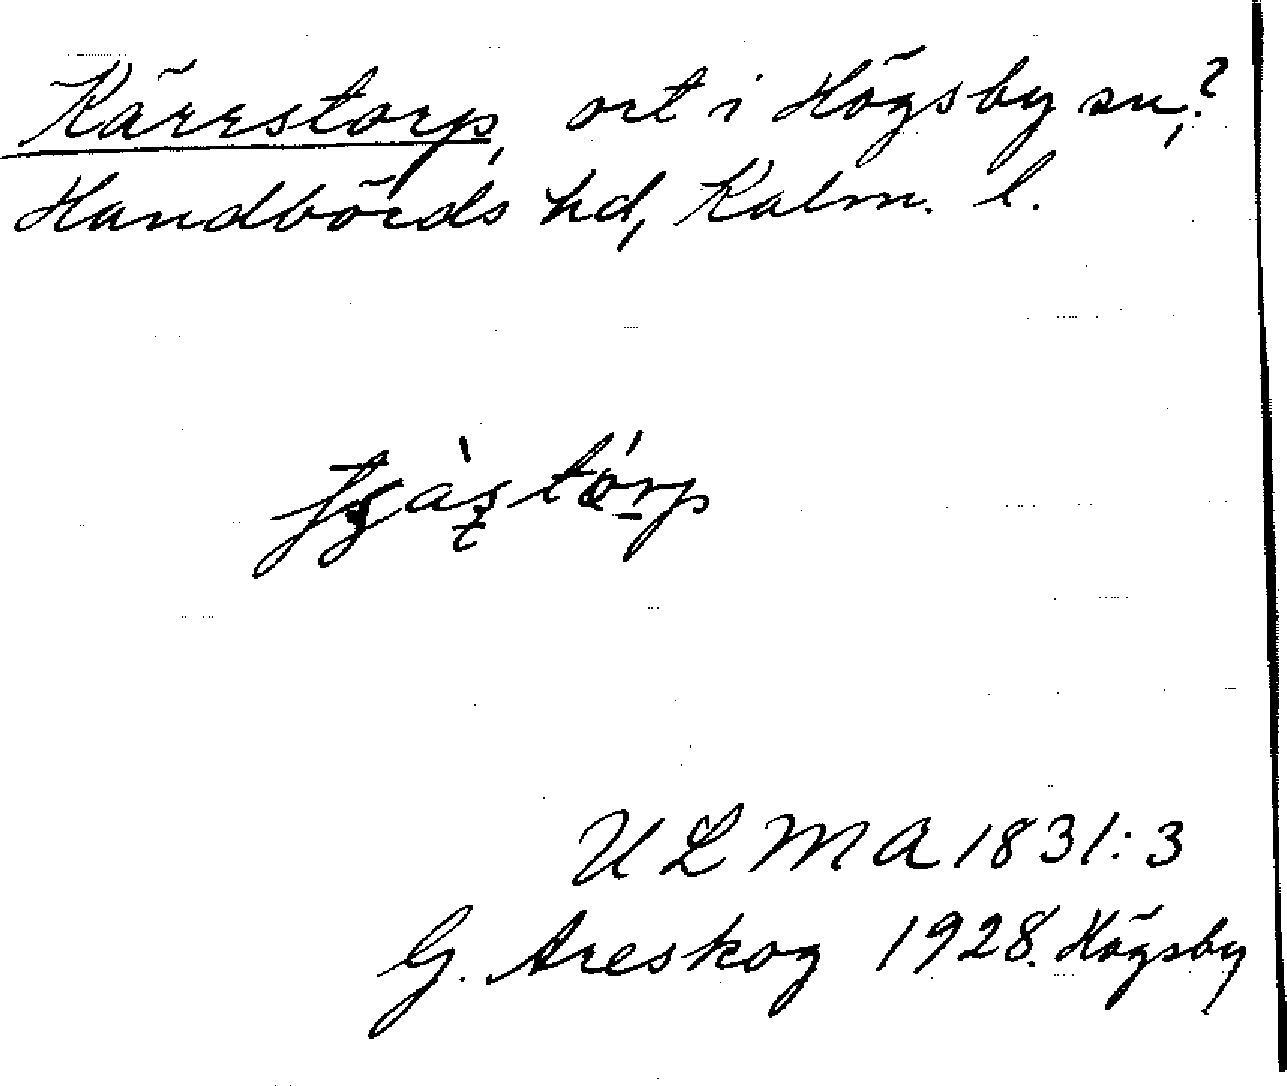 Kärrstorp, ort i Högsby sn,?
Handbörds hd, Kalm. l.
ULMA 1831:3
G. Areskog 1928. Högsby